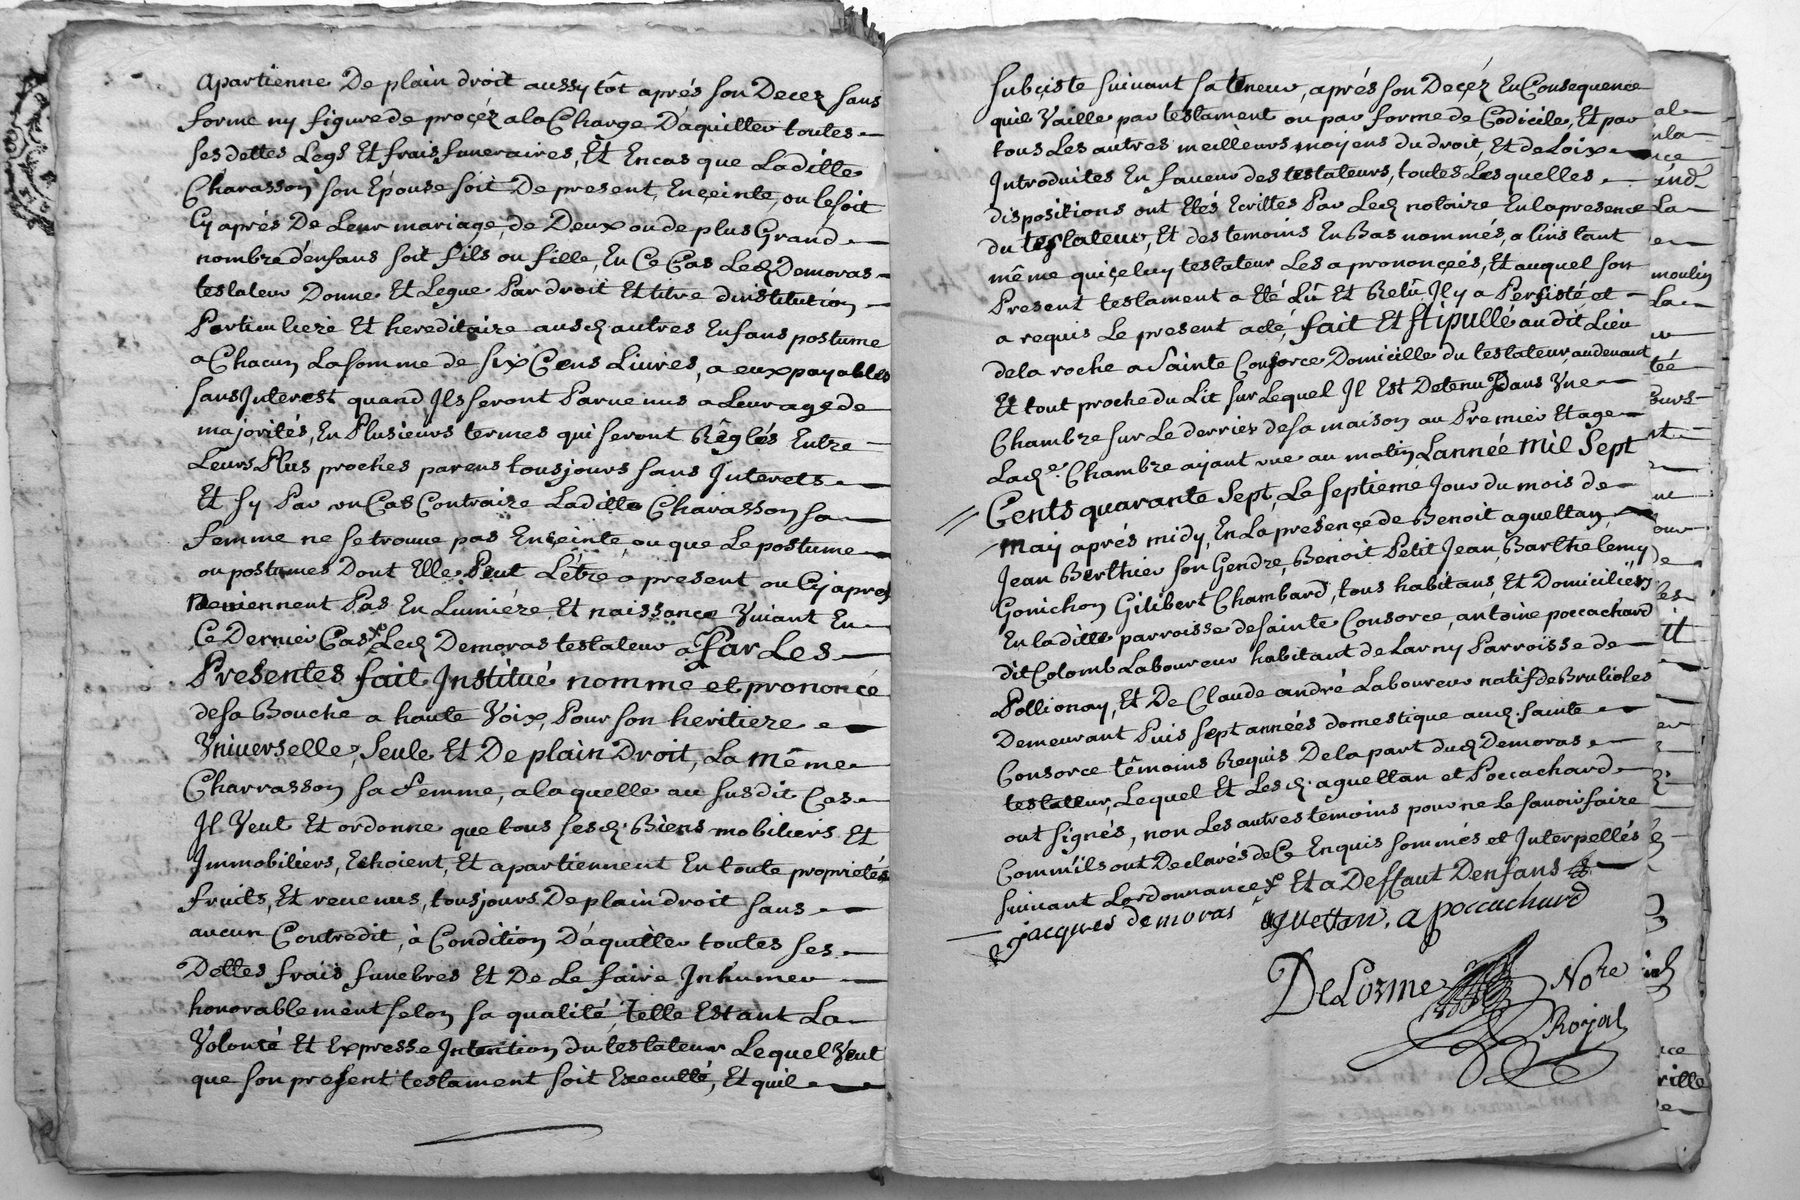 apartienne De plain droit aussy tôt aprés son Decez sans
forme ny figure de procéz a la Charge D'aquitter toutes
ses dettes Legs Et frais funeraires, Et En cas que Laditte
Charasson son Epouse soit De present Enceinte, ou le soit
Cy aprés De Leur mariage, de Deux ou de plus Grand
nombre d'enfans soit fils ou fille, En Ce Cas Led Demoras
testateur Donne Et Legue Par droit Et titre d'institution
Particuliere Et hereditaire ausd autres Enfans postume
a Chacun La somme de six Cens Livres, a eux payables
sans Interest quand Ils seront Parvenus a Leur age de
majorités, En Plusieurs termes qui seront Réglés Entre
Leurs Plus proches parens tousjours sans Interets
Et sy Par un Cas Contraire Laditte Charasson sa
femme ne se trouve pas Enceinte, ou que Le postume
ou postumes Dont Elle Peut L'étre a present ou Cy apres
Neviennent Pas En Lumiére Et naissance Vivant En
Ce Dernier Cas Led Demoras testateur a Par Les
Presentes fait Institué nommé et prononcé
de sa Bouche a haute Voix, Pour son heritiere
Universelle, Seule Et De plain Droit, La même
Charrasson sa femme, a la quelle au susdit Cas
Il Veut Et ordonne que tous sesd. Biens mobiliers Et
Immobiliers, Echoient, Et apartiennent En toute proprietés
fruits, Et revenus, tousjours De plain droit sans
aucun Contredit, à Condition D'aquitter toutes ses
Dettes frais funebres Et De Le faire Inhumer
honorablement selon sa qualité, Telle Estant La
Volonté Et Expresse Intention du testateur Lequel Veut
que son present testament soit Executté, Et quil
subsiste suivant sa teneur, aprés son Decéz En Consequence
quil Vaille par testament ou par forme de Codicile, Et par
tous Les autres meilleurs moyens du droit, Et de Loix
Introduites En faveur des testateurs, toutes Les quelles
dispositions ont Etés Ecrittes Par Led notaire En la presence
du testateur, Et des temoins En Bas nommés, a linstant
même qu'içeluy testateur Les a prononçées, Et auquel son
Present testament a Eté Lû Et Relû Il y a Persisté et
a requis Le present acte, fait Et stipullé audit Lieu
de la roche a Sainte Consorce Domicille du testateur, audevant
Et tout proche du Lit sur Lequel Il Est Detenu Dans Une
Chambre sur Le derrier de sa maison au Premier Etage
Lade. Chambre aijant vue au matin L'année Mil Sept
Cents quarante Sept, Le septieme Jour du mois de
Maij aprés midy, En La presençe de Benoit aguettan
Jean Berthier son Gendre, Benoit Petit Jean, Barthelemy
Gonichon Gilibert Chambard, tous habitans, Et Domiciliés
En laditte parroisse de sainte Consorce, antoine poccachard
dit Colomb Laboureur habitant de Larny Parroisse de
Pollionay, Et De Claude andré Laboureur natif de Brulioles
Demeurant Puis sept années domestique aud. sainte
Consorce témoins Requis De la part dud Demoras
testateur, Lequel Et Lesd. aguettan et Poccachard
ont signés, non Les autres témoins pour ne Le savoir faire
Comm'ils ont Declarés de Ce Enquis sommés et Interpellés
suivant Lordonnance, Et a Deffaut Denfans
jacques demoras aguettan. a poccachard
DeLorme Nore
Royal